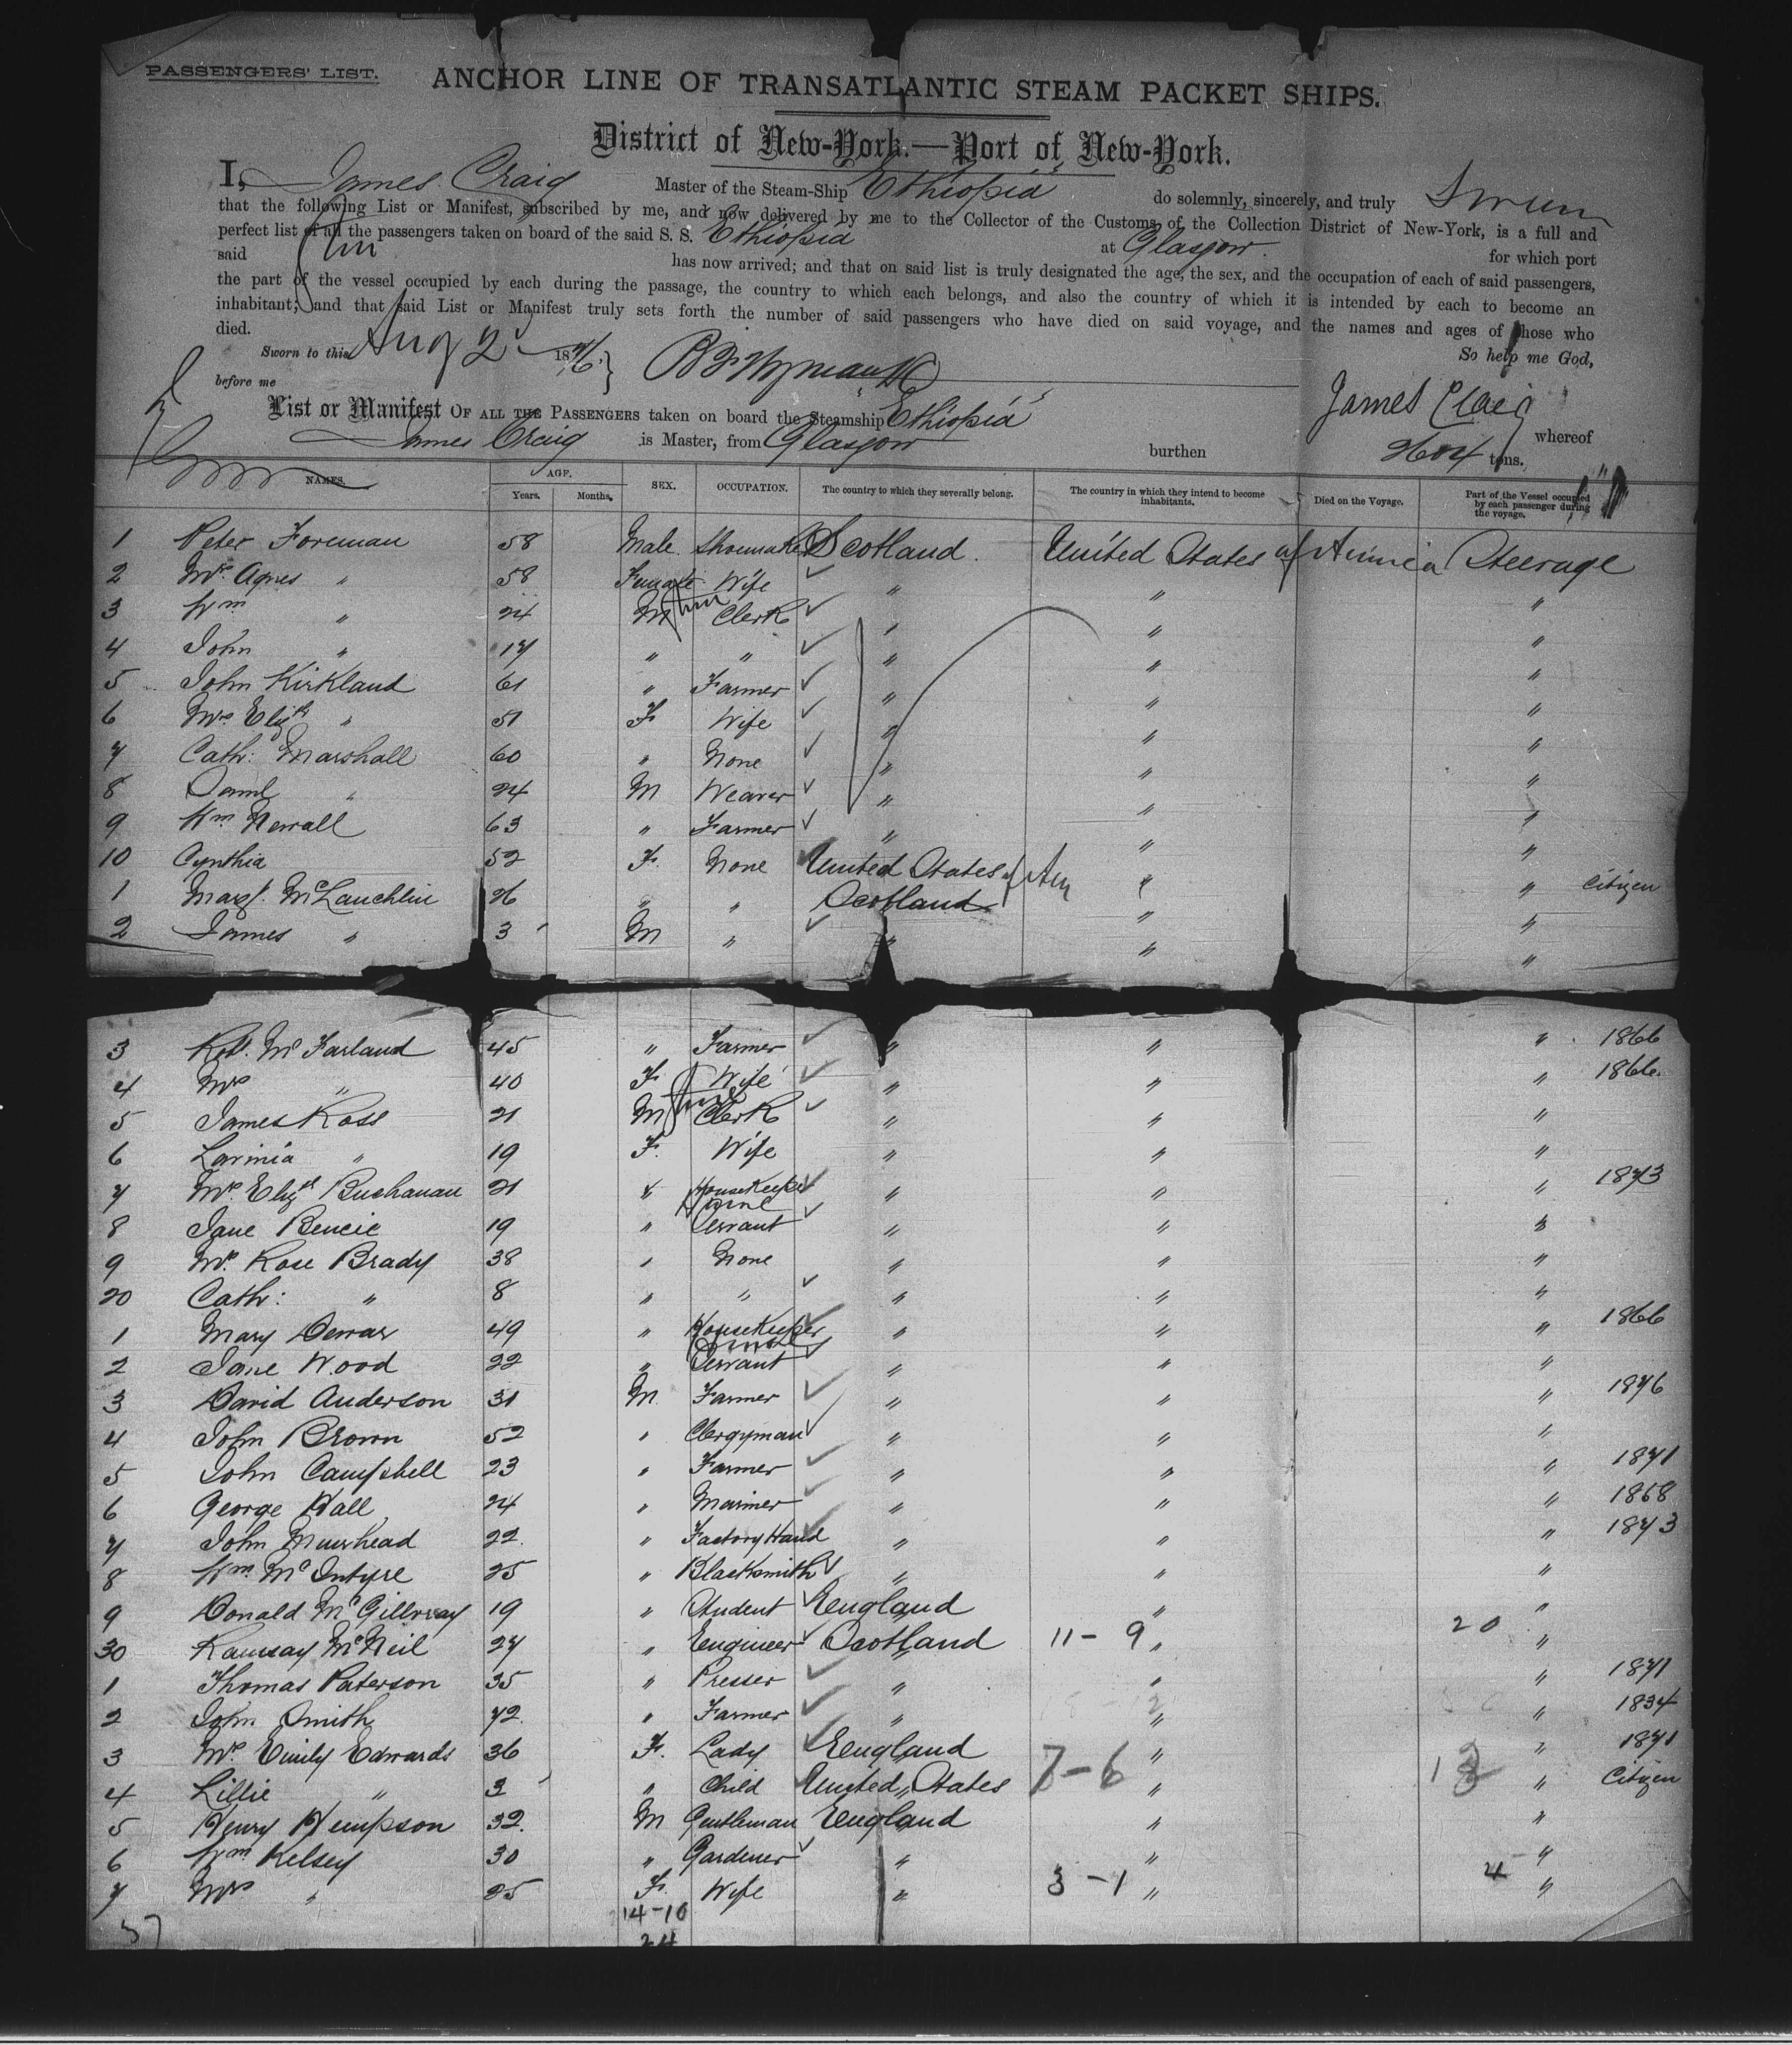 PASSENGERS' LIST.
ANCHOR LINE OF TRANSATLANTIC STEAM PACKET SHIPS.
District of New-York.—Port of New-York.
I, James Craig Master of the Steam-Ship Ethiopia do solemnly, sincerely, and truly Swear
that the following List or Manifest, subscribed by me, and now delivered by me to the Collector of the Customs of the Collection District of New-York, is a full and
perfect list of all the passengers taken on board of the said S. S. Ethiopia at Glasgow for which port
said has now arrived; and that on said list is truly designated the age, the sex, and the occupation of each of said passengers,
the part of the vessel occupied by each during the passage, the country to which each belongs, and also the country of which it is intended by each to become an
inhabitant; and that said List or Manifest truly sets forth the number of said passengers who have died on said voyage, and the names and ages of those who
died. So help me God,
Sworn to this Aug 2 1876
before me James Craig
List or Manifest OF ALL THE PASSENGERS taken on board the Steamship Ethiopia whereof
James Craig is Master, from Glasgow burthen 2604 tons.
NAMES. AGE. Years. Months. SEX. OCCUPATION. The country to which they severally belong. The country in which they intend to become inhabitants. Died on the Voyage. Part of the Vessel occupied by each passenger during the voyage.
1 Peter Foreman 58 Male Shoemaker Scotland United States of America Steerage
2 Mrs Agnes " 58 Female Wife " " "
3 Wm " 24 M Clerk " " "
4 John " 17 " " " " "
5 John Kirkland 61 " Farmer " " "
6 Mrs Elizth " 51 F Wife " " "
7 Cath: Marshall 60 " None " " "
8 Saml " 24 M Weaver " " "
9 Wm Newall 63 " Farmer " " "
10 Cynthia 52 F. None United States of Am " " Citizen
1 Margt. McLauchlin 26 " " Scotland " "
2 James " 3 M " " " "
3 Robt. McFarland 45 " Farmer " " " 1866
4 Mrs " 40 F Wife " " " 1866
5 James Ross 21 M Clerk " " "
6 Lavinia " 19 F. Wife " " "
7 Mrs Elizth Buchanan 21 " Housekeeper " " " 1873
8 Jane 19 " Servant " " "
9 Mrs Rose Brady 38 " None " " "
20 Cath: " 8 " " " " "
1 Mary Dewar 49 " Housekeeper " " " 1866
2 Jane Wood 22 " Servant " " "
3 David Anderson 31 M Farmer " " " 1876
4 John Brown 52 " Clergyman " " "
5 John Campbell 23 " Farmer " " " 1871
6 George Hall 24 " Mariner " " " 1868
7 John Muirhead 22 " Factory Hand " " " 1873
8 Wm McIntyre 25 " Blacksmith " " "
9 Donald McGillvray 19 " Student England " "
30 Ramsay McNeil 27 " Engineer Scotland 11-9 " 20 "
1 Thomas Paterson 35 " Presser " " " 1871
2 John Smith 72 " Farmer " " " 1834
3 Mrs Emily Edwards 36 F. Lady England " " 1871
4 Lillie " 3 " Child United States 7-6 " " Citizen
5 Henry Hempson 32 M Gentleman England " "
6 Wm Kelsey 30 " Gardener " " "
7 Mrs " 25 F. Wife " 3-1 " 4 "
37 14-10
24